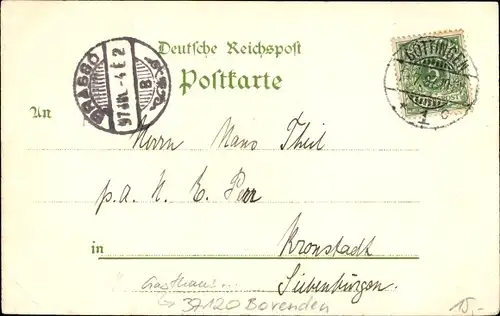 Deutsche Reichspost
Postkarte
BRASSÓ
97 JUL. 4 É. 2
B
GÖTTINGEN
1
c
An
Herrn Hans Theil
p.a. H. E. Perr
in Kronstadt
Siebenbürgen.
Gasthaus...
37120 Bovenden
15,-